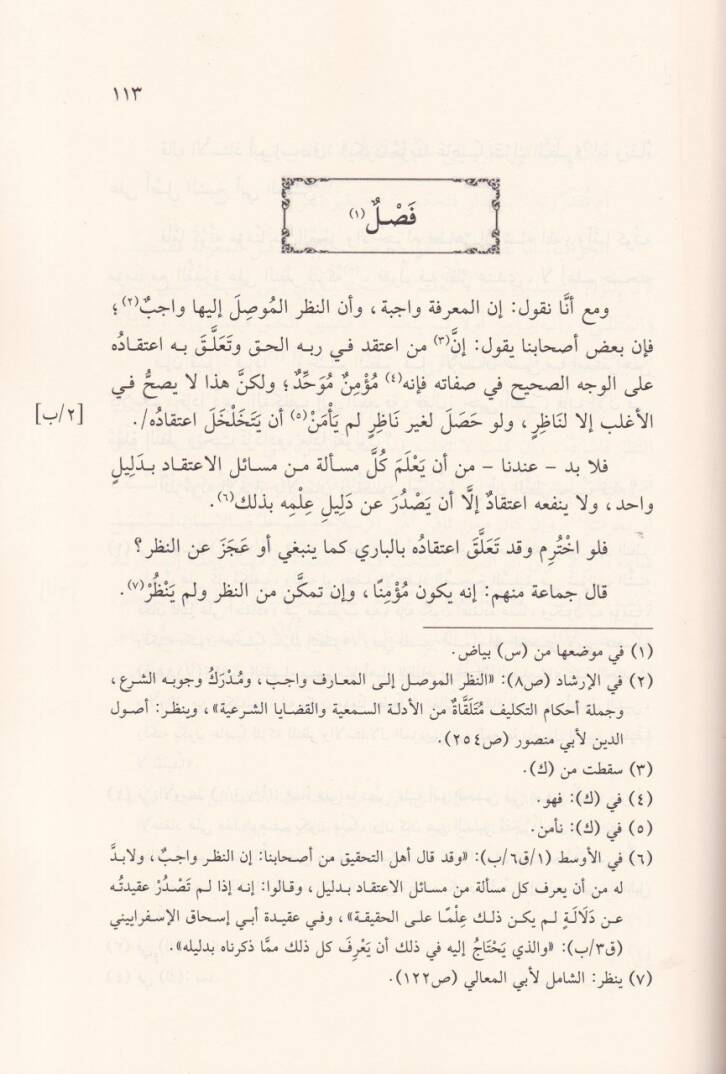 ١١٣
فَصْلٌ(١)
ومع أنَّا نقول: إن المعرفة واجبة، وأن النظر المُوصِلَ إليها واجبٌ(٢)؛
فإن بعض أصحابنا يقول: إنَّ(٣) من اعتقد في ربه الحق وتَعَلَّقَ به اعتقادُه
على الوجه الصحيح في صفاته فإنه(٤) مُؤْمِنٌ مُوَحِّدٌ؛ ولكنَّ هذا لا يصحُّ في
الأغلب إلا لنَاظِرٍ، ولو حَصَلَ لغير نَاظِرٍ لم يَأْمَنْ(٥) أن يَتَخَلْخَلَ اعتقادُه/. [٢/ب]
فلا بد - عندنا - من أن يَعْلَمَ كُلَّ مسألة من مسائل الاعتقاد بدَلِيلٍ
واحد، ولا ينفعه اعتقادٌ إلَّا أن يَصْدُرَ عن دَلِيلِ عِلْمِه بذلك(٦).
فلو اخْتُرِم وقد تَعَلَّقَ اعتقادُه بالباري كما ينبغي أو عَجَزَ عن النظر؟
قال جماعة منهم: إنه يكون مُؤْمِنًا، وإن تمكَّن من النظر ولم يَنْظُرْ(٧).
(١) في موضعها من (س) بياض.
(٢) في الإرشاد (ص٨): «النظر الموصل إلى المعارف واجب، ومُدْرَكُ وجوبه الشرع،
وجملة أحكام التكليف مُتَلَقَّاةٌ من الأدلة السمعية والقضايا الشرعية»، وينظر: أصول
الدين لأبي منصور (ص٢٥٤).
(٣) سقطت من (ك).
(٤) في (ك): فهو.
(٥) في (ك): نأمن.
(٦) في الأوسط (١/ق٦/ب): «وقد قال أهل التحقيق من أصحابنا: إن النظر واجبٌ، ولابدَّ
له من أن يعرف كل مسألة من مسائل الاعتقاد بدليل، وقالوا: إنه إذا لم تَصْدُرْ عقيدتُه
عن دَلَالَةٍ لم يكن ذلك عِلْمًا على الحقيقة»، وفي عقيدة أبي إسحاق الإسفراييني
(ق٣/ب): «والذي يَحْتَاجُ إليه في ذلك أن يَعْرِفَ كل ذلك ممَّا ذكرناه بدليله».
(٧) ينظر: الشامل لأبي المعالي (ص١٢٢).